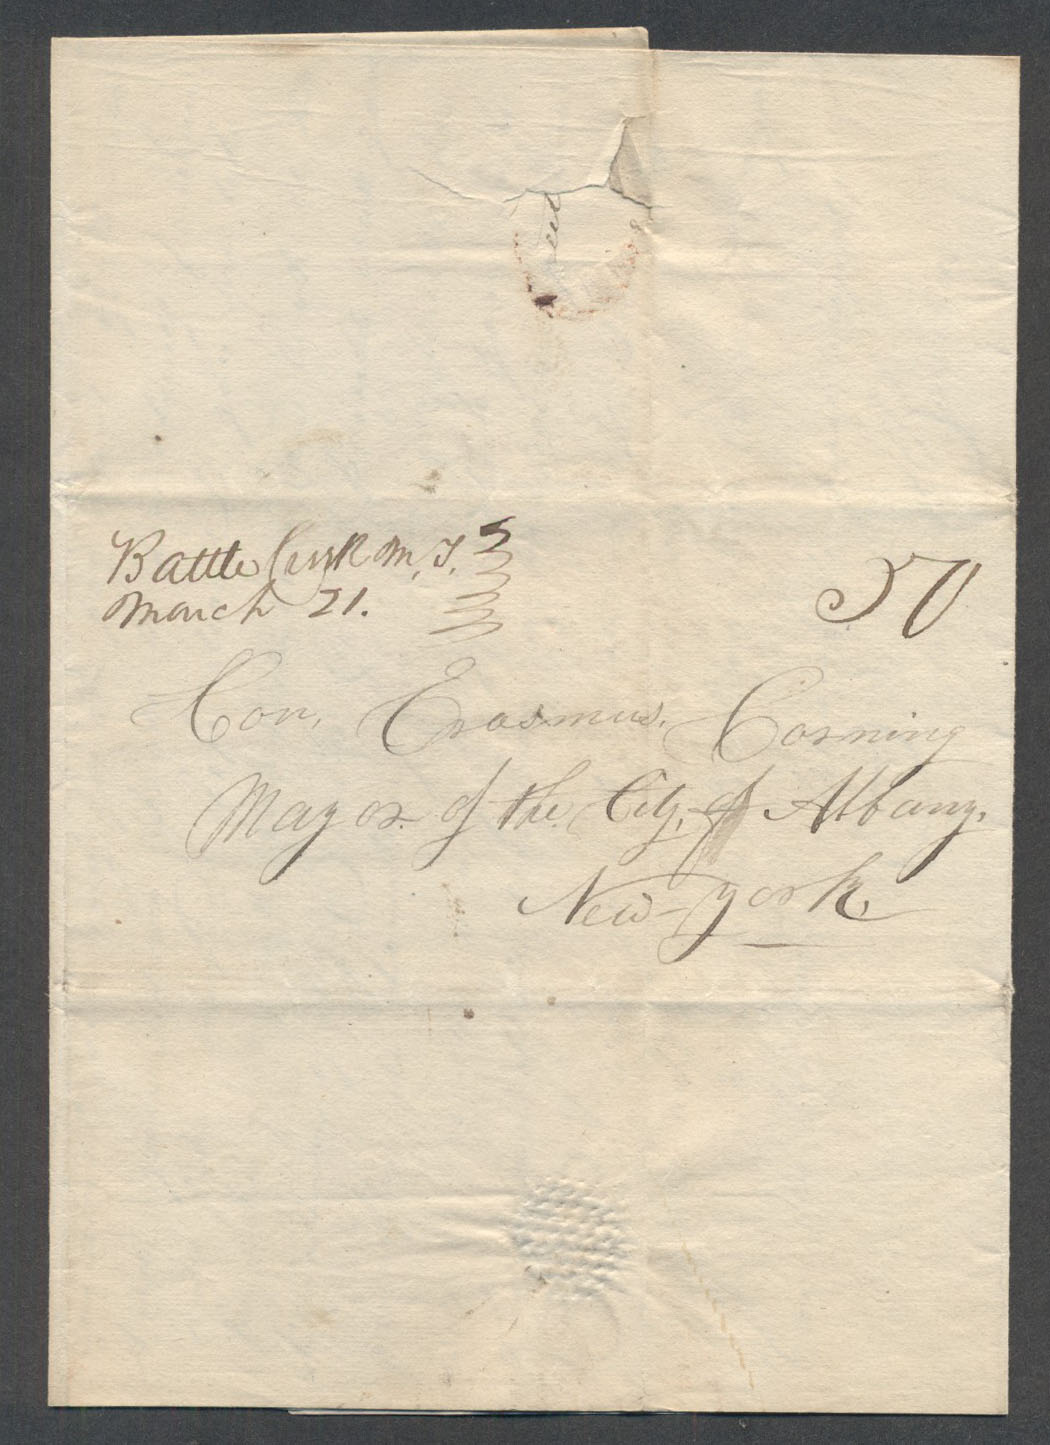 Battle Creek M, T.
March 21.
50
Hon, Erasmus. Corning
Mayor. of the City, of Albany,
New-york,